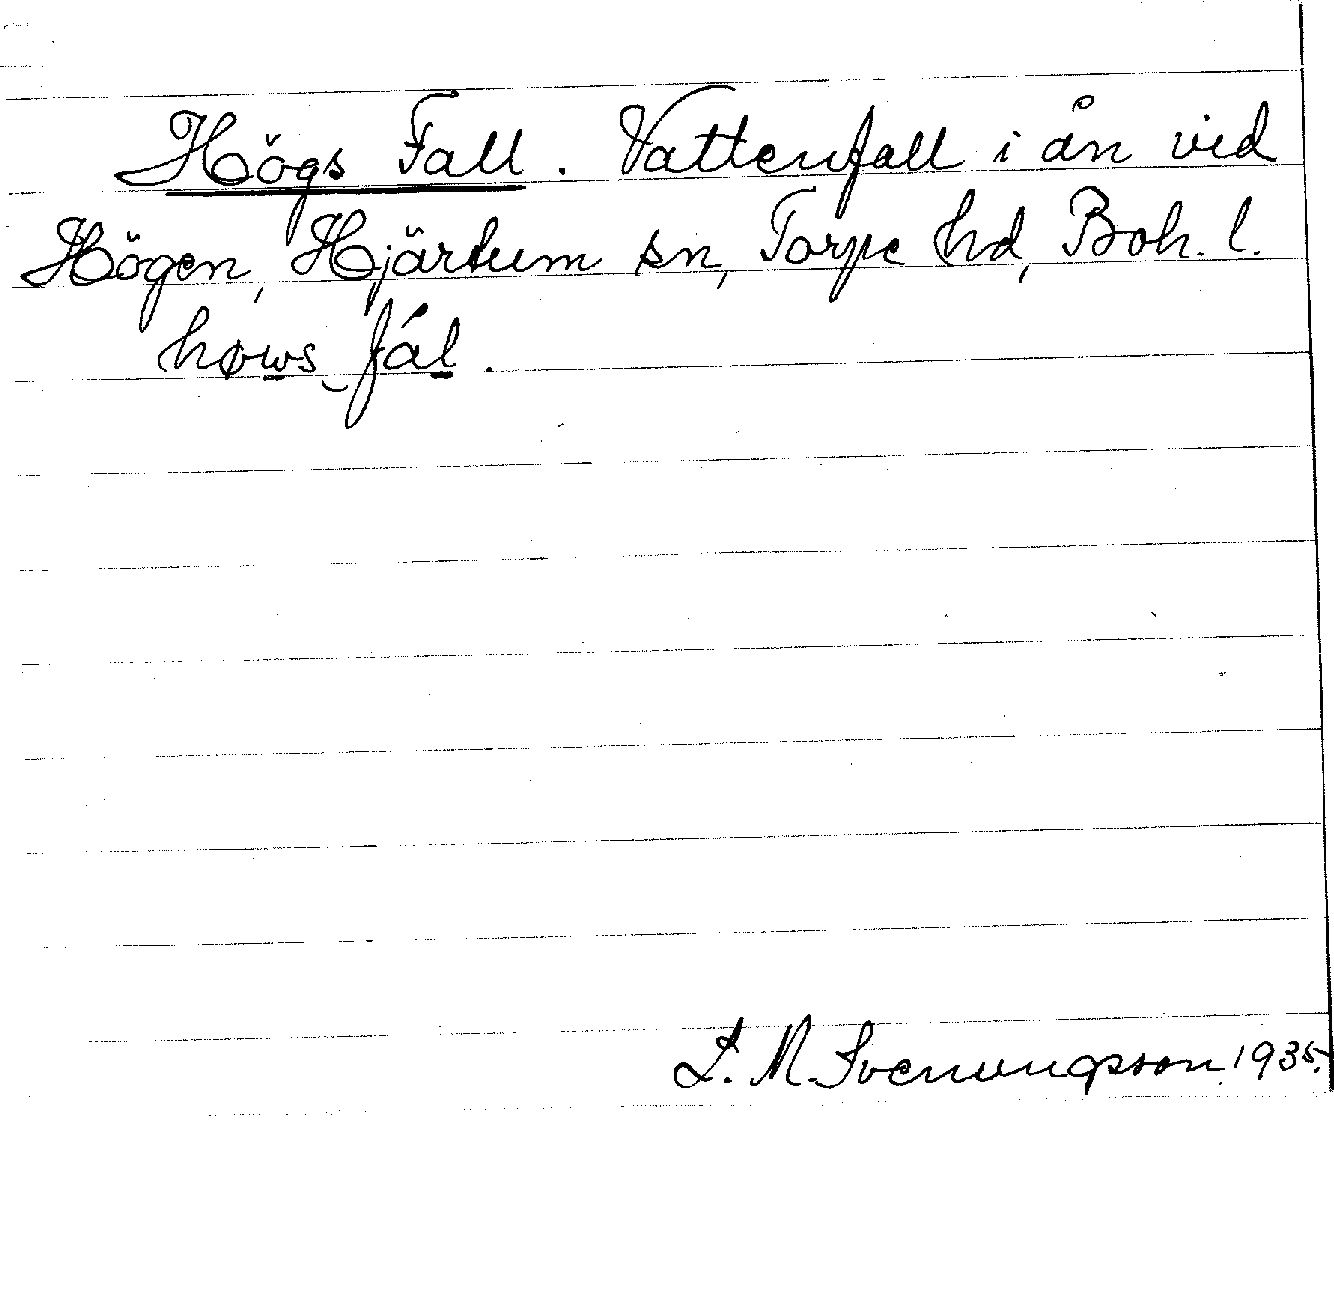 Högs Fall. Vattenfall i ån vid
Högen, Hjärtum sn, Torpe hd, Boh. l.
høws‿fál.
L. M. Svenungsson 1935.